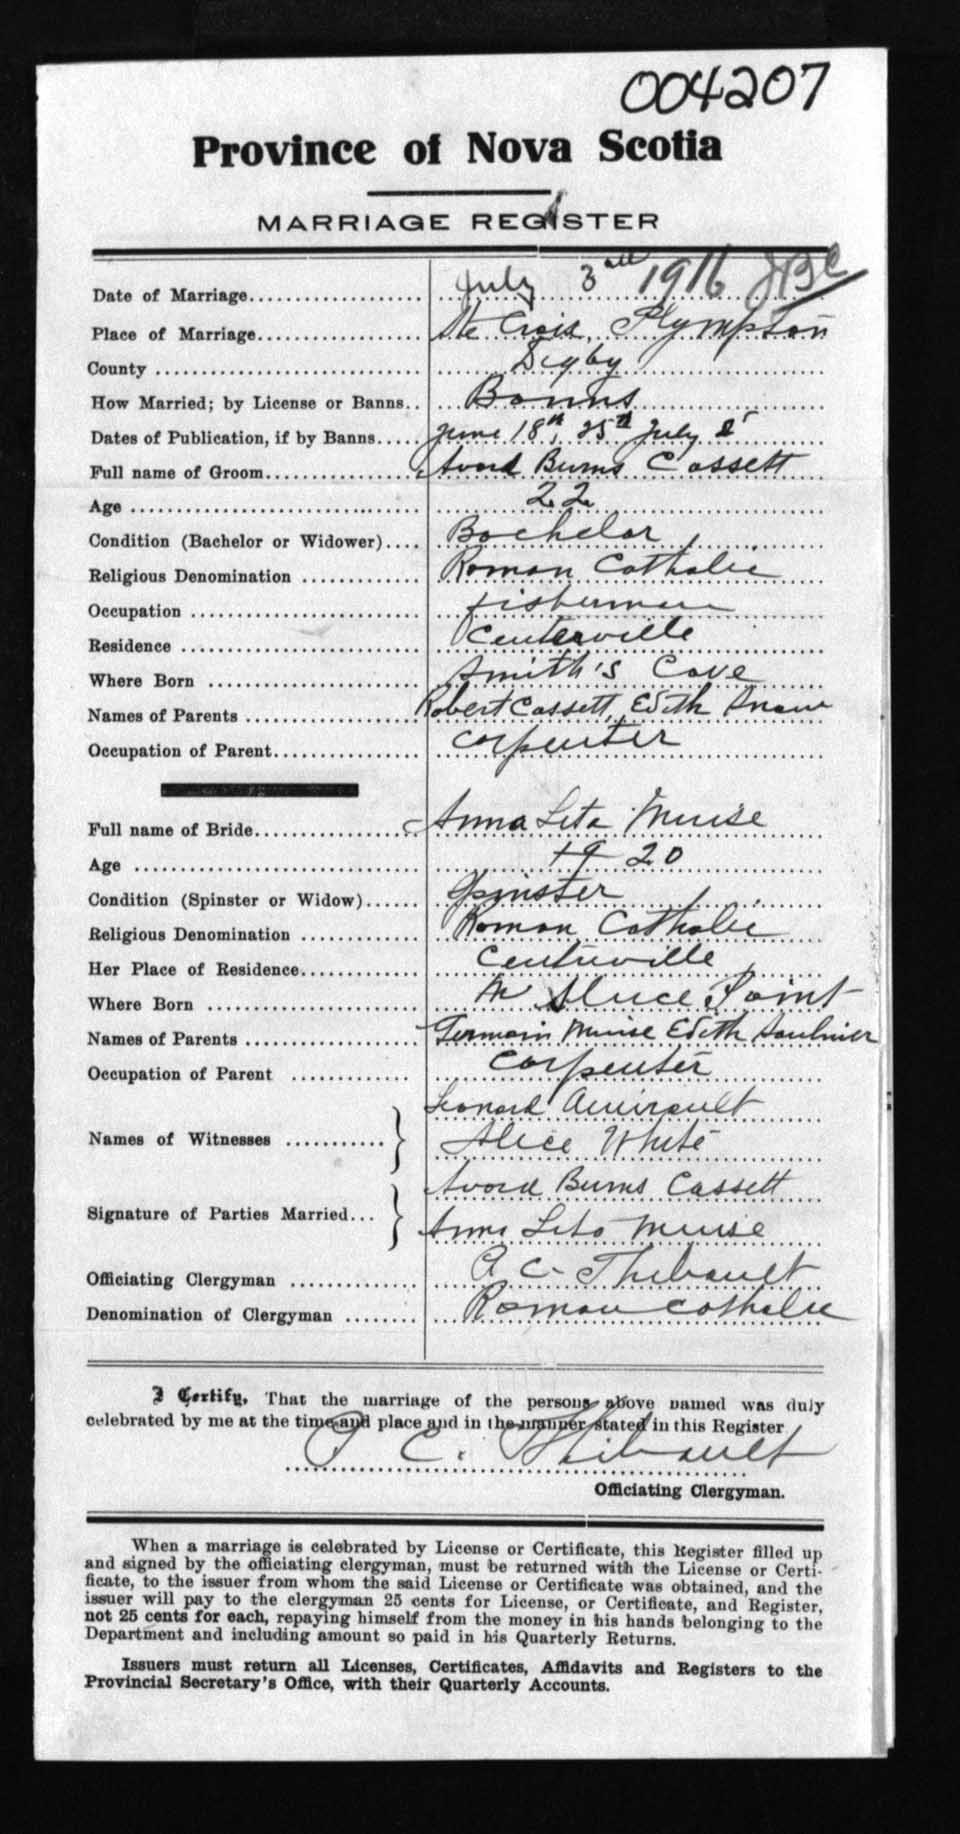 004207
Province of Nova Scotia
MARRIAGE REGISTER
Date of Marriage.................... July 3rd 1916
Place of Marriage................... Ste Croix, Plympton
County ............................... Digby
How Married; by License or Banns.. Banns
Dates of Publication, if by Banns..... June 18th, 25th July 2
Full name of Groom.................. Avord Burns Cossett
Age ................................... 22
Condition (Bachelor or Widower).... Bachelor
Religious Denomination ............. Roman Catholic
Occupation .......................... fisherman
Residence ........................... Centerville
Where Born ........................ Smith's Cove
Names of Parents ................... Robert Cossett, Edith Snow
Occupation of Parent................ Carpenter
Full name of Bride................... Anna Leta Muise
Age .................................. 19 20
Condition (Spinster or Widow)...... Spinster
Religious Denomination ............. Roman Catholic
Her Place of Residence............. Centreville
Where Born ........................ Sluice Point
Names of Parents ................... Germain Muise Edith Saulnier
Occupation of Parent ............. Carpenter
Leonard Amirault
Names of Witnesses ........... } Alice White
Avord Burns Cassett
Signature of Parties Married... } Anna Leta Muise
Officiating Clergyman .............. A C. Thibault
Denomination of Clergyman ........ Roman Catholic
I Certify, That the marriage of the persons above named was duly
celebrated by me at the time and place and in the manner stated in this Register
A C. Thibault
Officiating Clergyman.
When a marriage is celebrated by License or Certificate, this Register filled up
and signed by the officiating clergyman, must be returned with the License or Certi-
ficate, to the issuer from whom the said License or Certificate was obtained, and the
issuer will pay to the clergyman 25 cents for License, or Certificate, and Register,
not 25 cents for each, repaying himself from the money in his hands belonging to the
Department and including amount so paid in his Quarterly Returns.
Issuers must return all Licenses, Certificates, Affidavits and Registers to the
Provincial Secretary's Office, with their Quarterly Accounts.